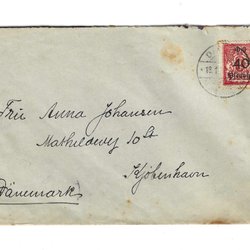 40
Fru Anna Johansen
Mathildevej 10 St
Kjöbenhavn
Dänemark